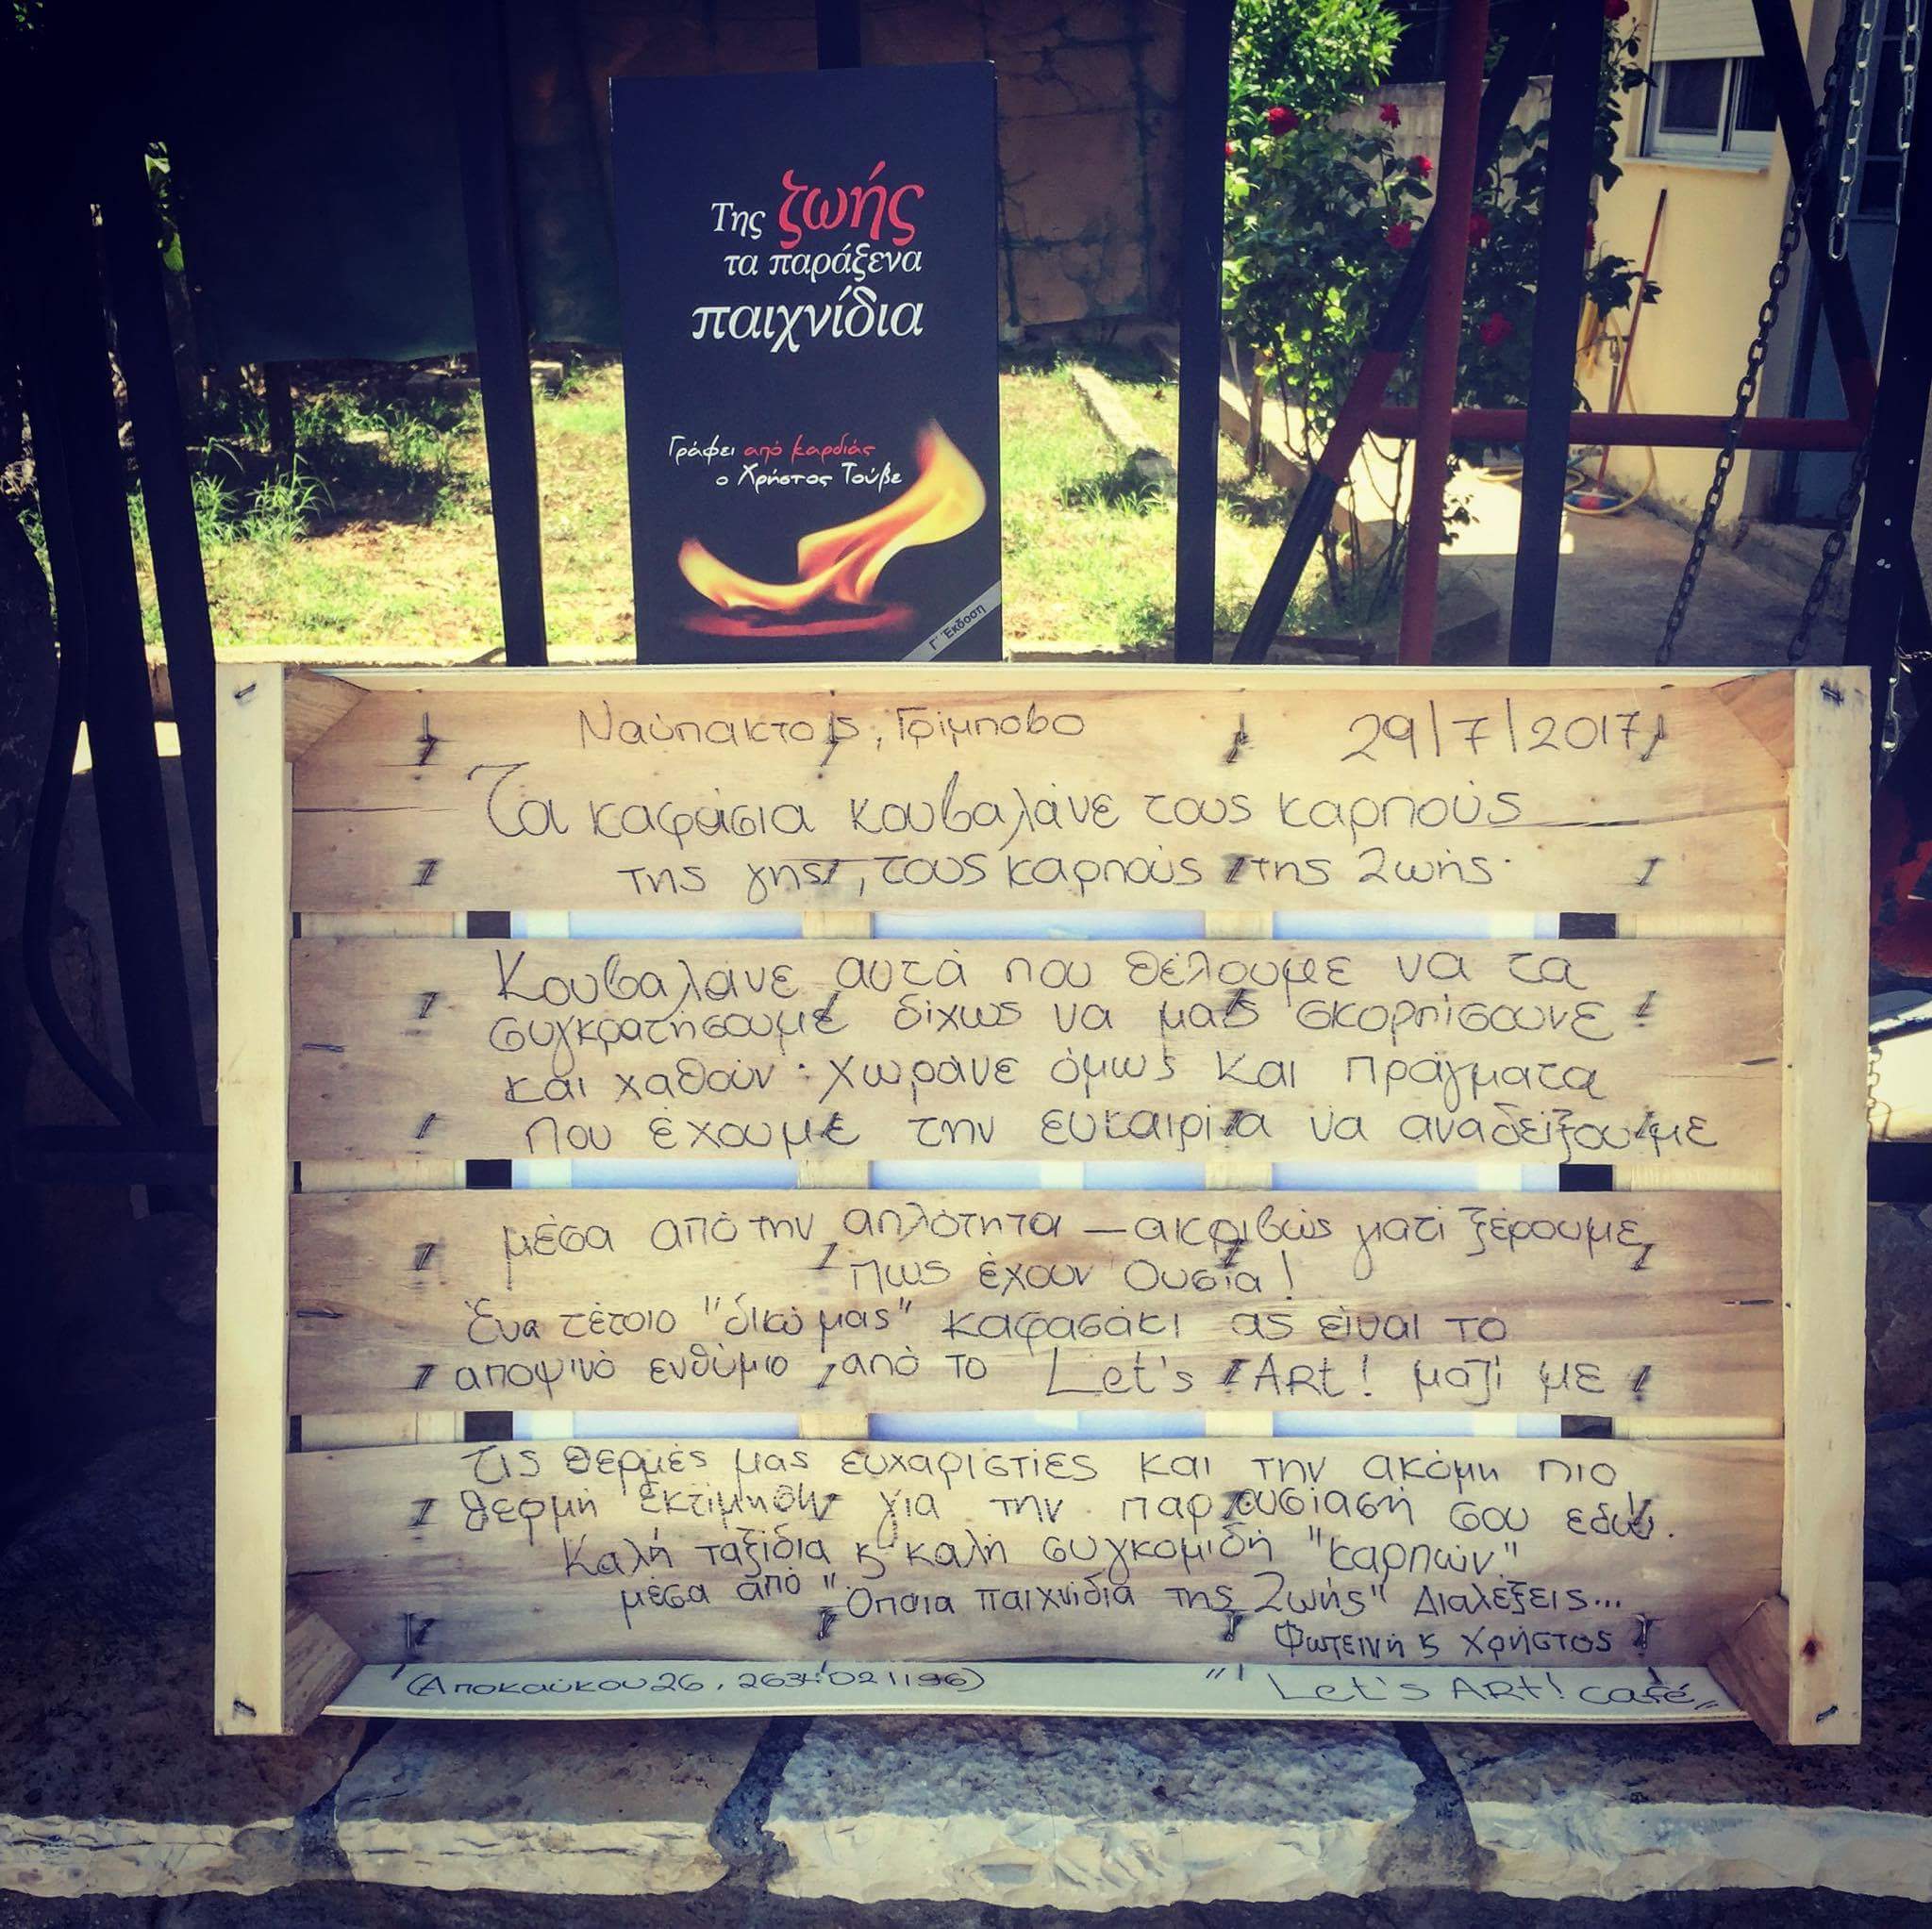 Της ζωής
τα παράξενα
παιχνίδια
Γράφει από καρδιάς
ο Χρήστος Τούβε
Γ' Έκδοση
Ναύπακτος, Γρίμποβο 29/7/2017
Τα καφάσια κουβαλάνε τους καρπούς
της γης, τους καρπούς της Ζωής·
Κουβαλάνε αυτά που θέλουμε να τα
συγκρατήσουμε δίχως να μας σκορπίσουνε
και χαθούν· Χωράνε όμως και πράγματα
που έχουμε την ευκαιρία να αναδείξουμε
μέσα από την απλότητα – ακριβώς γιατί ξέρουμε
πως έχουν Ουσία!
Ένα τέτοιο "δικό μας" καφασάκι ας είναι το
αποψινό ενθύμιο από το Let's ARt! μαζί με
τις θερμές μας ευχαριστίες και την ακόμη πιο
θερμή εκτίμηση για την παρουσίασή σου εδώ.
Καλή ταξίδια ϗ καλή συγκομιδή "καρπών"
μέσα από "Όποια παιχνίδια της Ζωής" Διαλέξεις...
Φωτεινή ϗ Χρήστος
(Αποκαύκου 26, 2634021196) "Let's ARt! café"